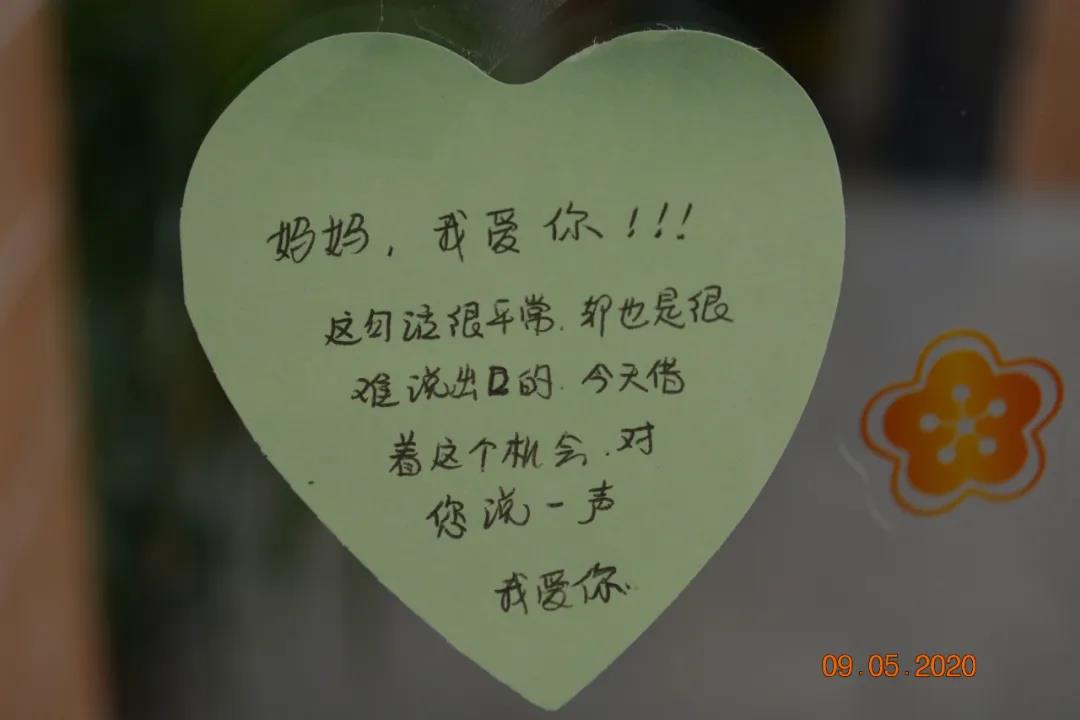 妈妈，我爱你！！！
这句话很平常，却也是很
难说出口的，今天借
着这个机会，对
您说一声
我爱你．
09.05.2020